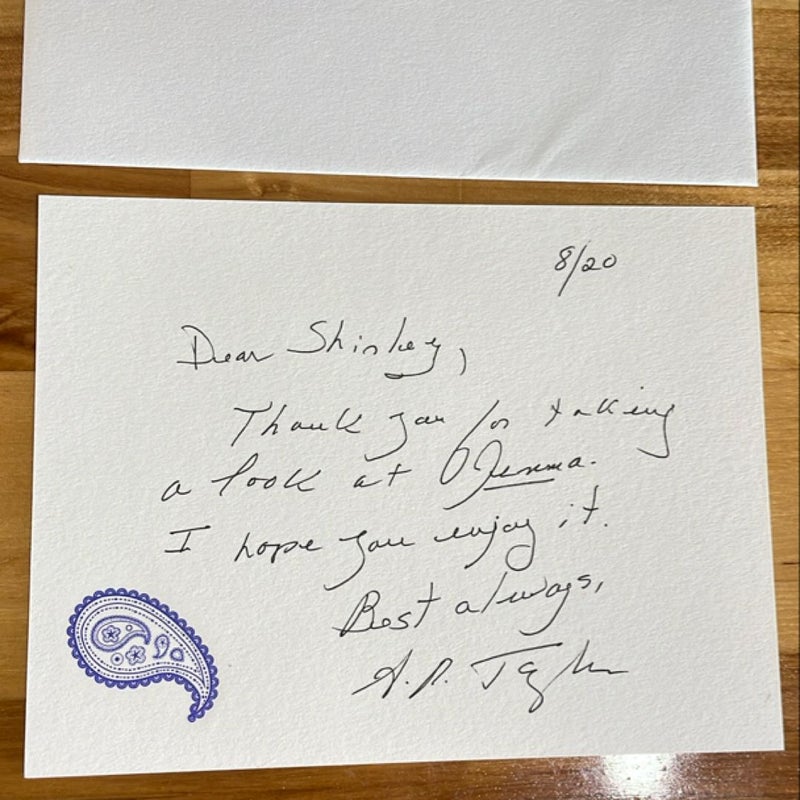 8/20
Dear Shirley,
Thank you for taking
a look at
I hope you enjoy it.
Best always,
Taylor